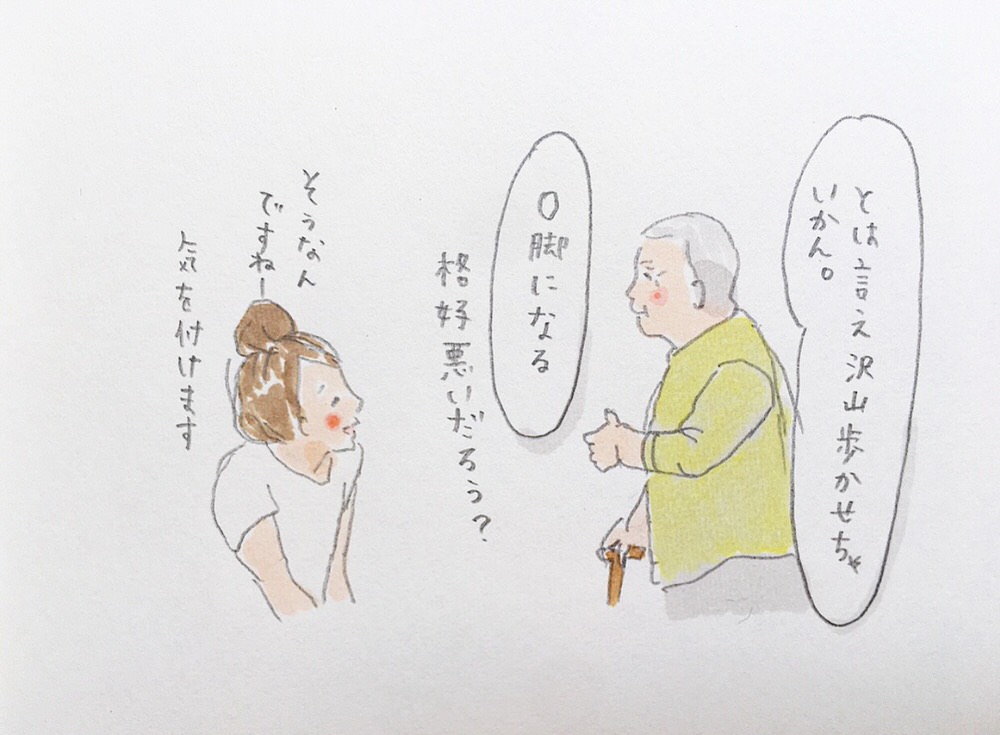 とは言え沢山歩かせちゃ
いかん。
O脚になる
格好悪いだろう?
そうなん
ですねー
気を付けます